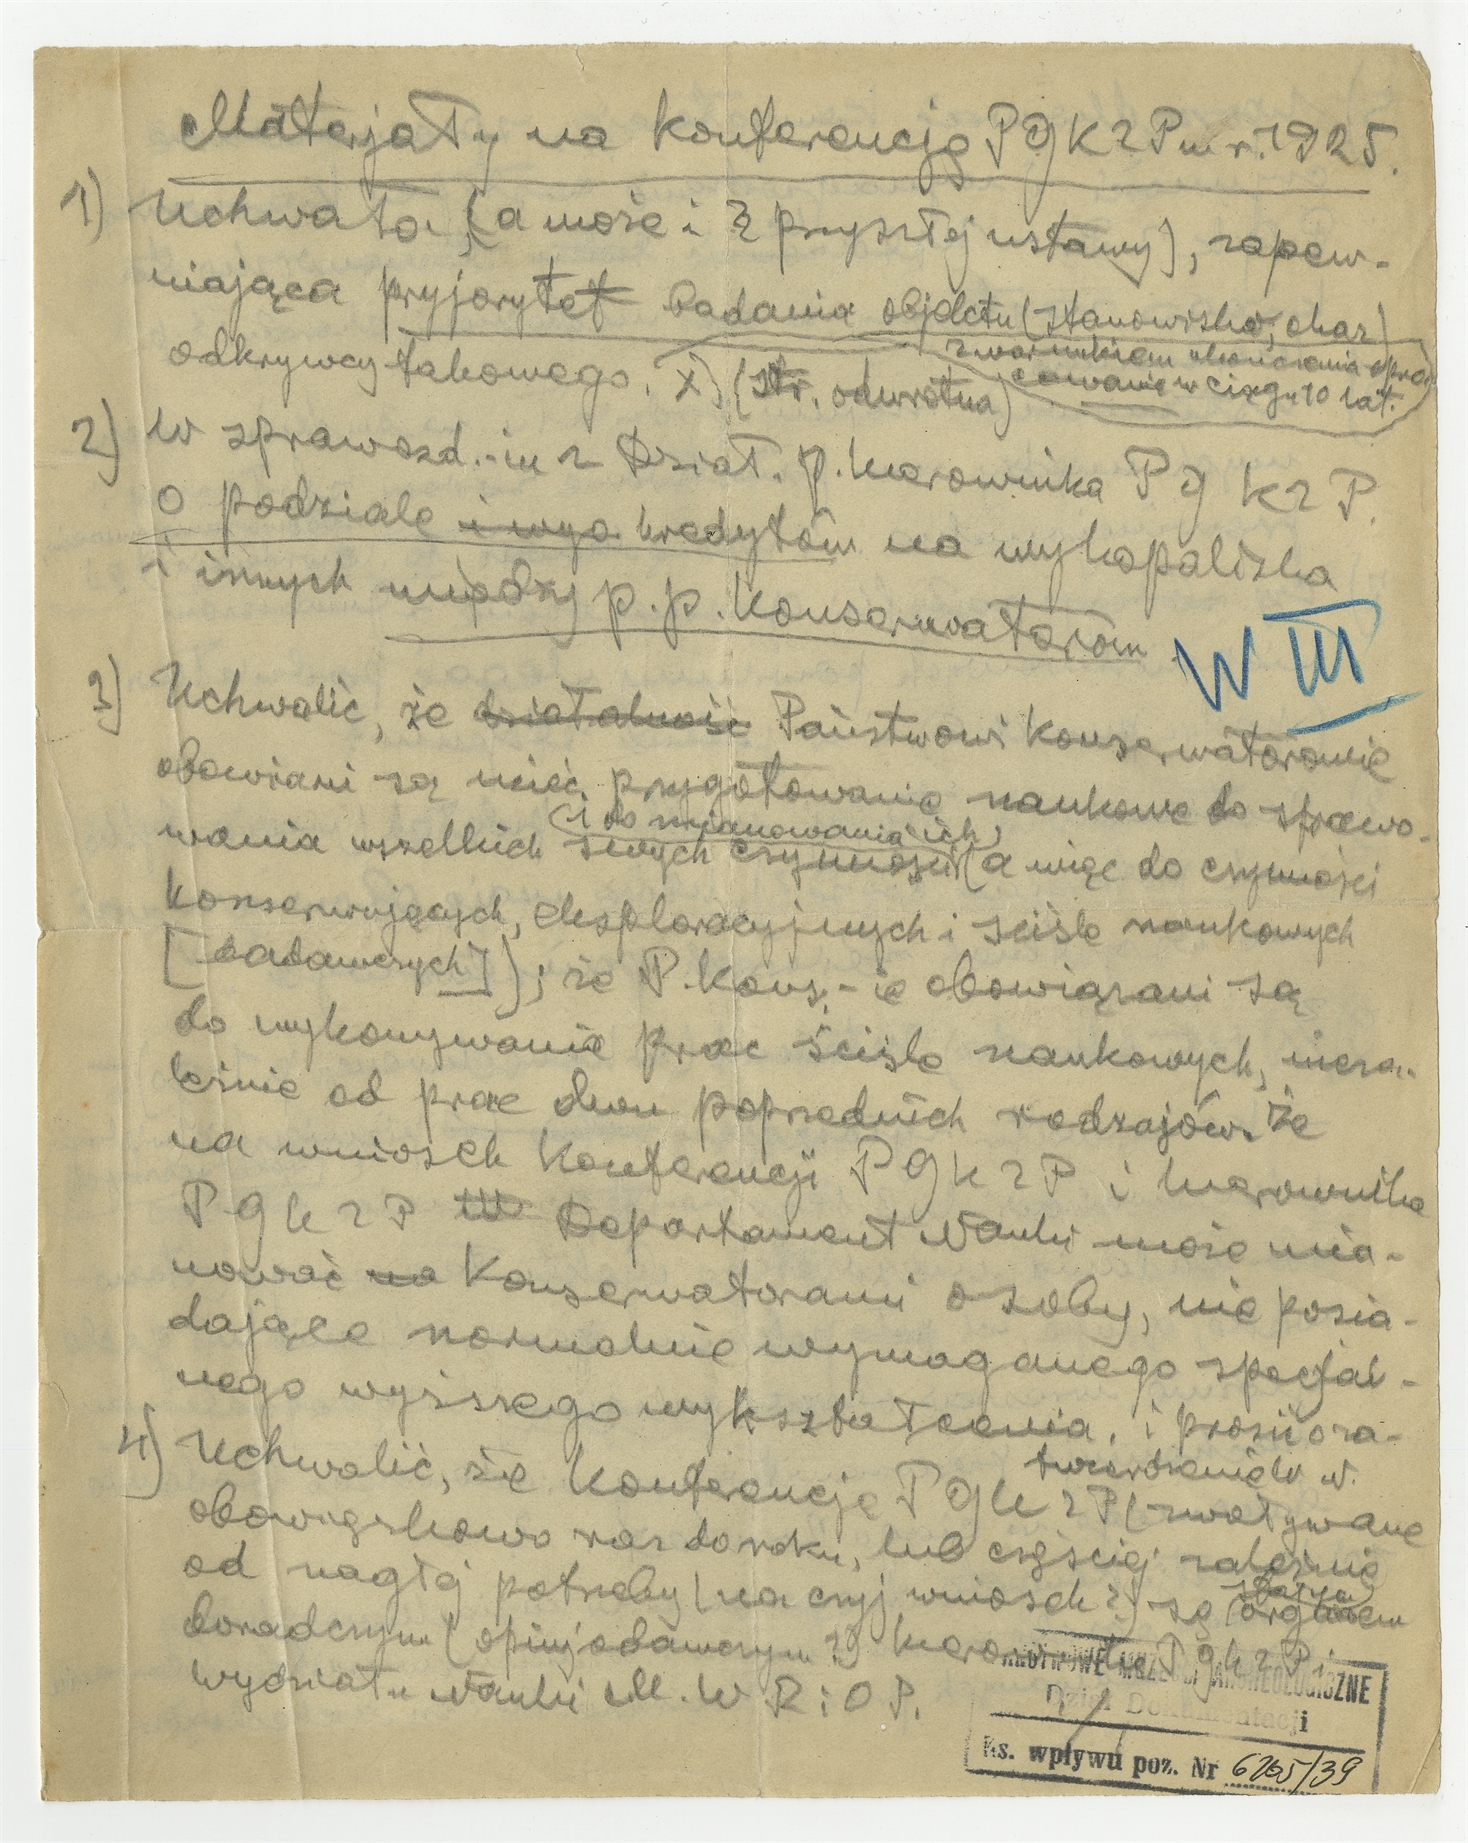 Materjały na konferencję PGKZP w r. 1925.
1) Uchwała, (a może i § przyszłej ustawy), zapew-
niająca pryjorytet badania objektu (stanowiska, obsz.)
odkrywcy takowego. x) (str. odwrotna)
z warunkiem ukończenia opra-
cowania w ciągu 10 lat.
2) W sprawozd.-iu z Dział. p. kierownika PGKZP.
o podziale i wyo kredytów na wykopaliska
i innych między p.p. Konserwatorów
W III
3) Uchwalić, że działalność Państwowi Konserwatorowie
obowiązani są mieć przygotowanie naukowe do sprawo-
(i do mianowania ich)
wania wszelkich swych czynności (a więc do czynności
konserwujących, eksploracyjnych i ściśle naukowych
[badawczych]); że P. Kons.-ie obowiązani są
do wykonywania prac ściśle naukowych, nieza-
leżnie od prac dwu poprzednich rodzajów. Że
na wniosek Konferencji PGKZP i kierownika
PGKZP W Departament Nauki może mia-
nować na Konserwatorami osoby, nie posia-
dające normalnie wymaganego specjal-
nego wyższego wykształcenia, i prosić o za-
twierdzenie W. N.
4) Uchwalić, że Konferencje PGKZP (zwoływane
obowiązkowo raz do roku, lub częściej zależnie
od nagłej potrzeby (na czyj wniosek?) są stałym organem
doradczym (opinjodawczym?) kierownika PGKZP i
wydziału Nauki M. W R i O P.
PAŃSTWOWE MUZEUM ARCHEOLOGICZNE
Dział Dokumentacji
Ks. wpływu poz. Nr 6265/39